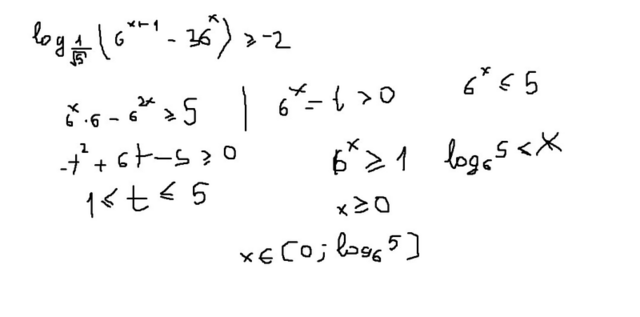 log_{1/√5} (6^{x+1} - 36^x) ≥ -2
6^x · 6 - 6^{2x} ≥ 5 | 6^x = t > 0
6^x ≤ 5
-t² + 6t - 5 ≥ 0
6^x ≥ 1
log_6 5 < x
1 ≤ t ≤ 5
x ≥ 0
x ∈ [0; log_6 5]